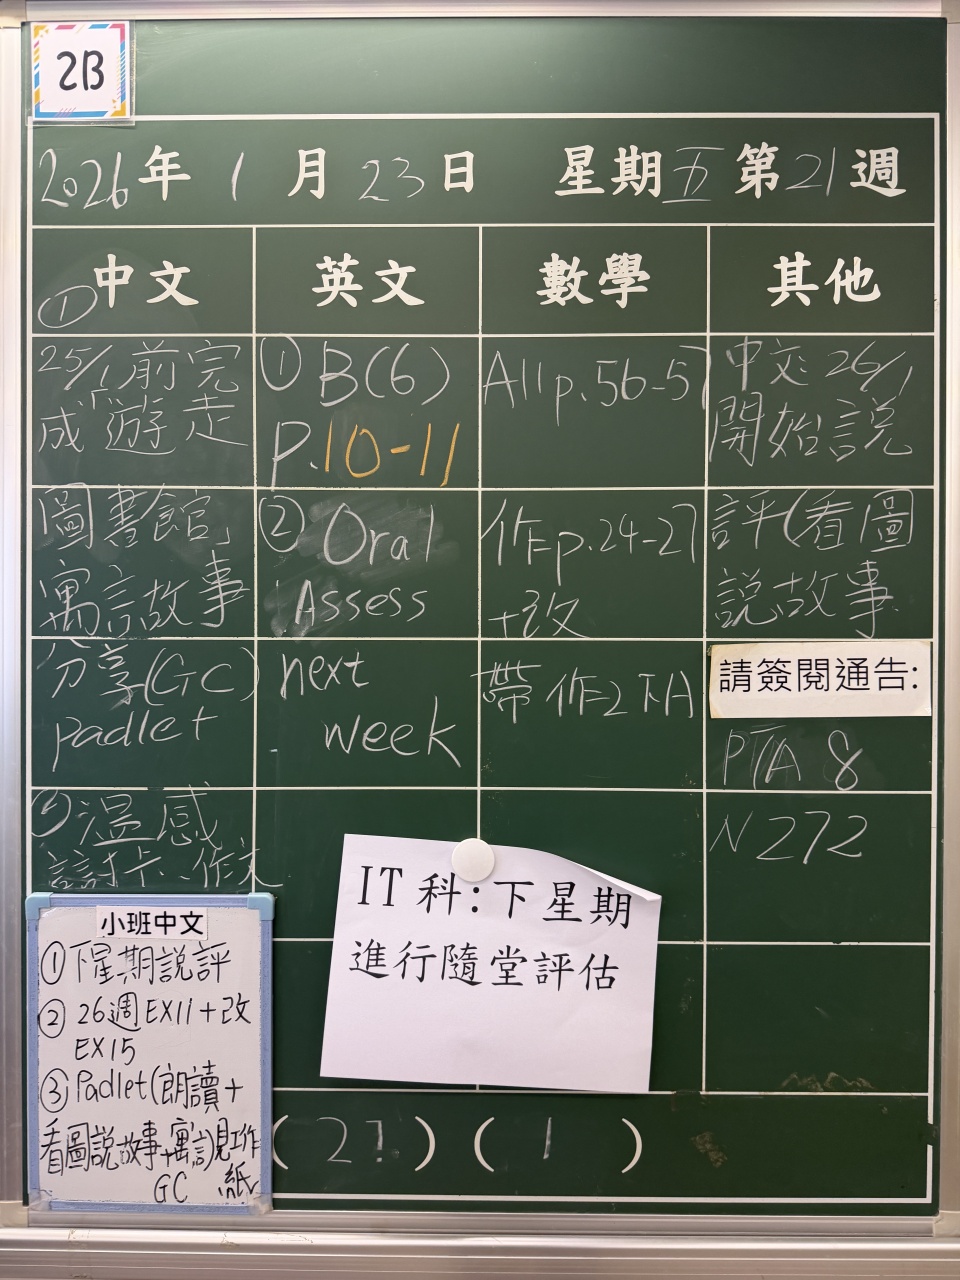 2B
2026年1月23日 星期五第21週
中文 英文 數學 其他
①
25/1前完
成「遊走
圖書館」
寓言故事
分享(GC)
padlet
溫感
作文
① B(6)
P.10-11
② Oral
Assess
next
week
A11p.56-57
作p.24-27
+改
帶作2下A
中文 26/1
開始說
評(看圖
說故事
請簽閱通告:
PTA 8
N272
IT科:下星期
進行隨堂評估
小班中文
①下星期說評
② 26週EX11+改
EX15
③Padlet(朗讀+
看圖說故事+寓言)見工作
GC 紙
( 27 ) ( 1 )